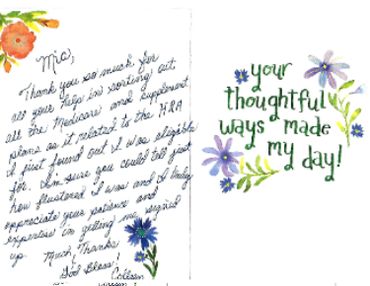 Mia,
Thank you so much for
all your help in sorting out
all the Medicare and supplement
plans as it related to the HRA
I first found out I was eligible
for. I'm sure you could tell just
how flustered I was and I truly
appreciate your patience and
expertise in getting me signed
up. Much Thanks!
God Bless!
Colleen
your
thoughtful
ways made
my day!